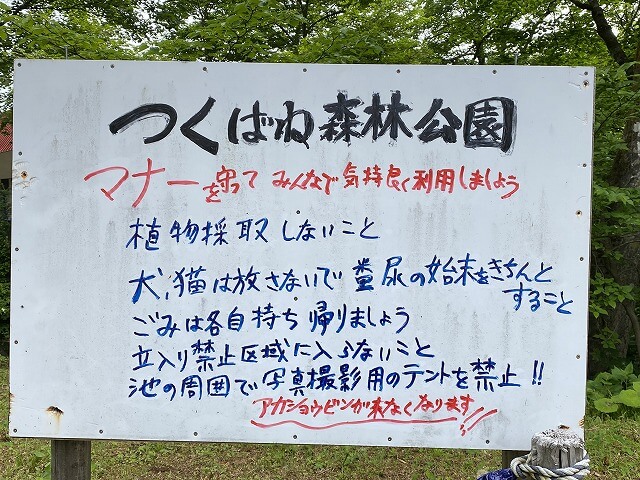 つくばね森林公園
マナーを守って みんなで気持良く利用しましよう
植物採取しないこと
犬,猫は放さないで 糞尿の始末をきちんと
すること
ごみは各自持ち帰りましょう
立入り禁止区域に入らないこと
池の周囲で写真撮影用のテントを禁止!!
アカショウビンが来なくなります!!